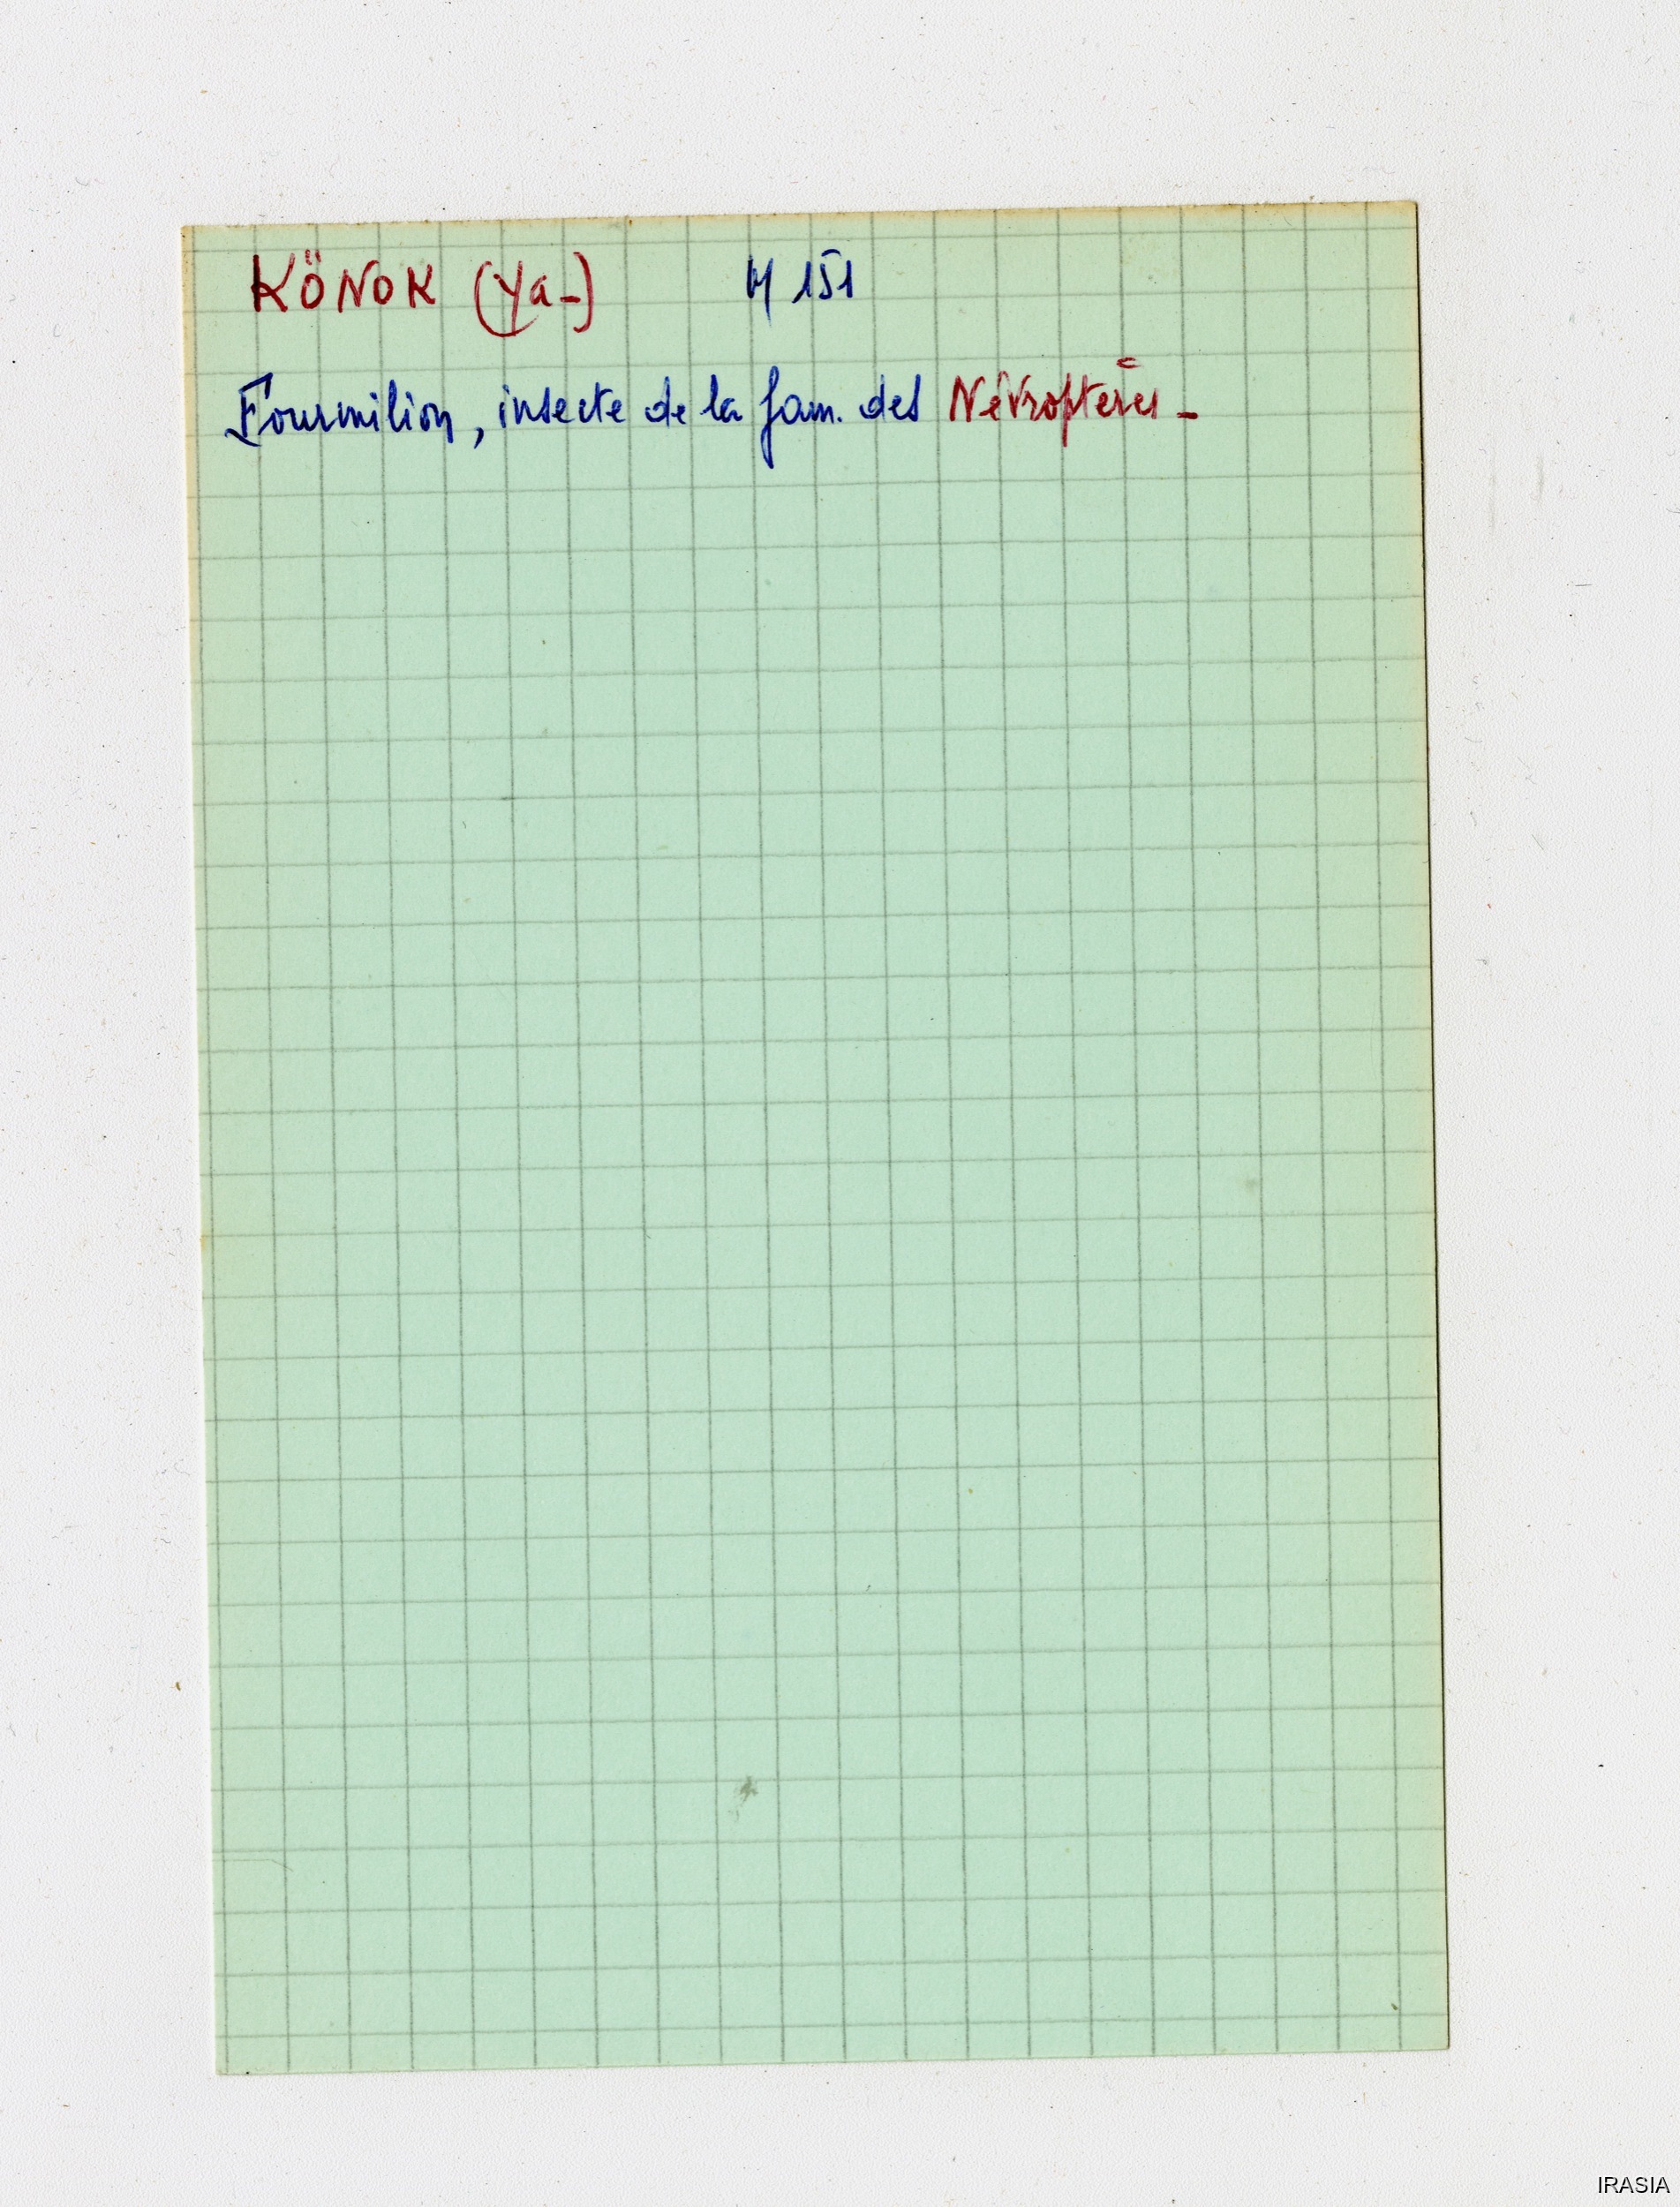 KÖNOK (Ya-) M 151
Fourmilion, insecte de la fam. des Névroptères -
IRASIA